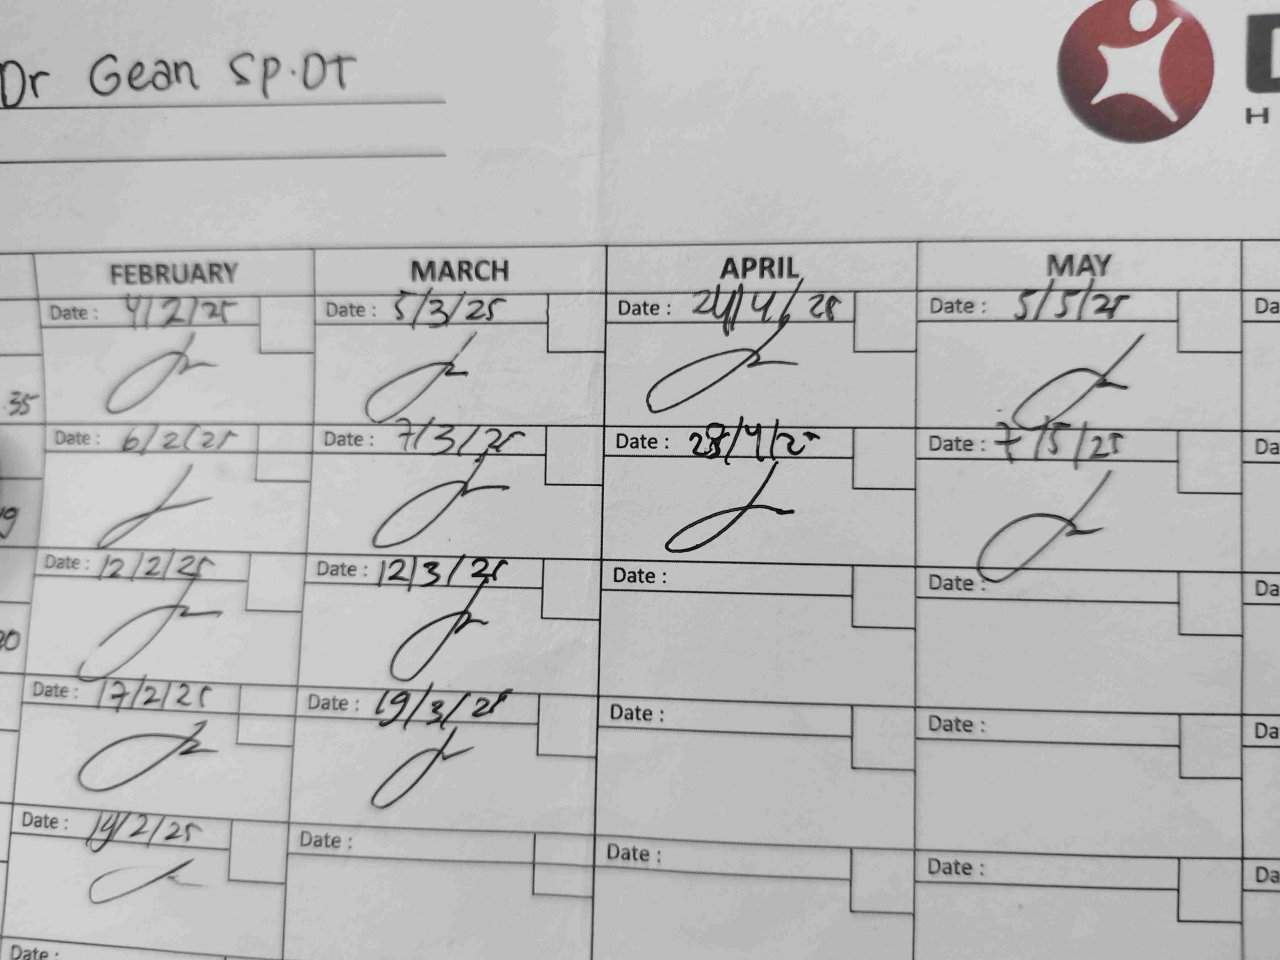 Dr Gean SP.OT
H
FEBRUARY MARCH APRIL MAY
Date : 4/2/25 Date : 5/3/25 Date : 24/4/25 Date : 5/5/25 Da
.35
Date : 6/2/25 Date : 7/3/25 Date : 28/4/25 Date : 7/5/25 Da
Date : 12/2/25 Date : 12/3/25 Date : Date : Da
Date : 17/2/25 Date : 19/3/25 Date : Date : Da
Date : 19/2/25 Date : Date : Date : Da
Date :